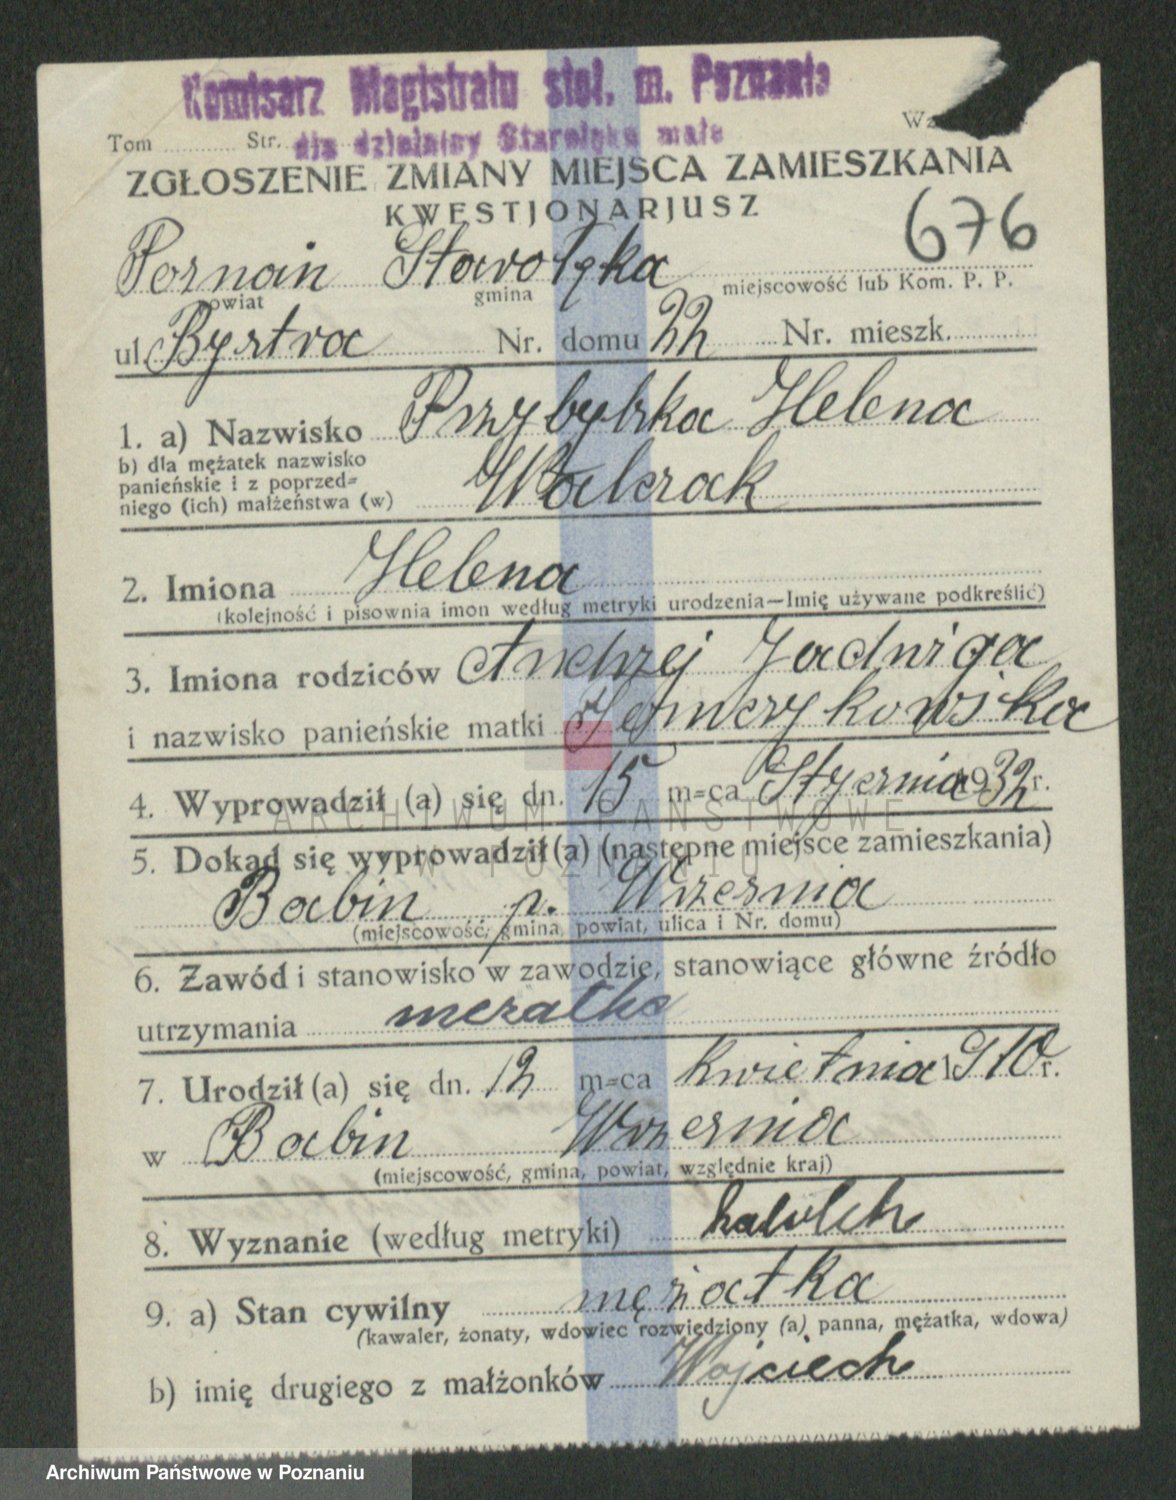 Komisarz Magistratu stoł. m. Poznania
dla dzielnicy Starołęka małe
Tom ........ Str.
ZGŁOSZENIE ZMIANY MIEJSCA ZAMIESZKANIA
KWESTJONARJUSZ
676
Poznań Starołęka
powiat gmina miejscowość lub Kom. P. P.
ul. Bystra Nr. domu 22 Nr. mieszk.
1. a) Nazwisko Przybylska Helena
b) dla mężatek nazwisko
panieńskie i z poprzed=
niego (ich) małżeństwa (w) Walczak
2. Imiona Helena
(kolejność i pisownia imon według metryki urodzenia—Imię używane podkreślić)
3. Imiona rodziców Andrzej Jadwiga
i nazwisko panieńskie matki
4. Wyprowadził (a) się dn. 15 m=ca Stycznia 1932 r.
ARCHIWUM PAŃSTWOWE
5. Dokąd się wyprowadził (a) (następne miejsce zamieszkania)
W POZNANIU
Babin p. Września
(miejscowość, gmina, powiat, ulica i Nr. domu)
6. Zawód i stanowisko w zawodzie, stanowiące główne źródło
utrzymania mężatka
7. Urodził (a) się dn. 12 m=ca kwietnia 1910 r.
w Babin Września
(miejscowość, gmina, powiat, względnie kraj)
8. Wyznanie (według metryki) katolck
9. a) Stan cywilny mężatka
(kawaler, żonaty, wdowiec rozwiedziony (a) panna, mężatka, wdowa)
b) imię drugiego z małżonków Wojciech
Archiwum Państwowe w Poznaniu